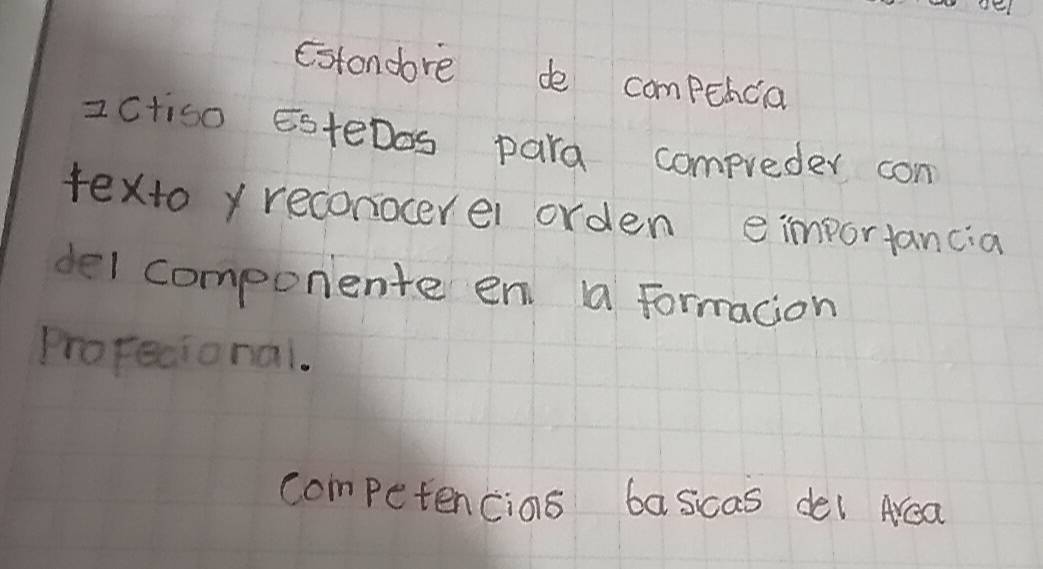 Estandore de compencia
Ictiso EsteDos para compreder con
texto y reconocer el orden e importancia
del componente en la Formacion
Profecional.
competencias basicas del Area